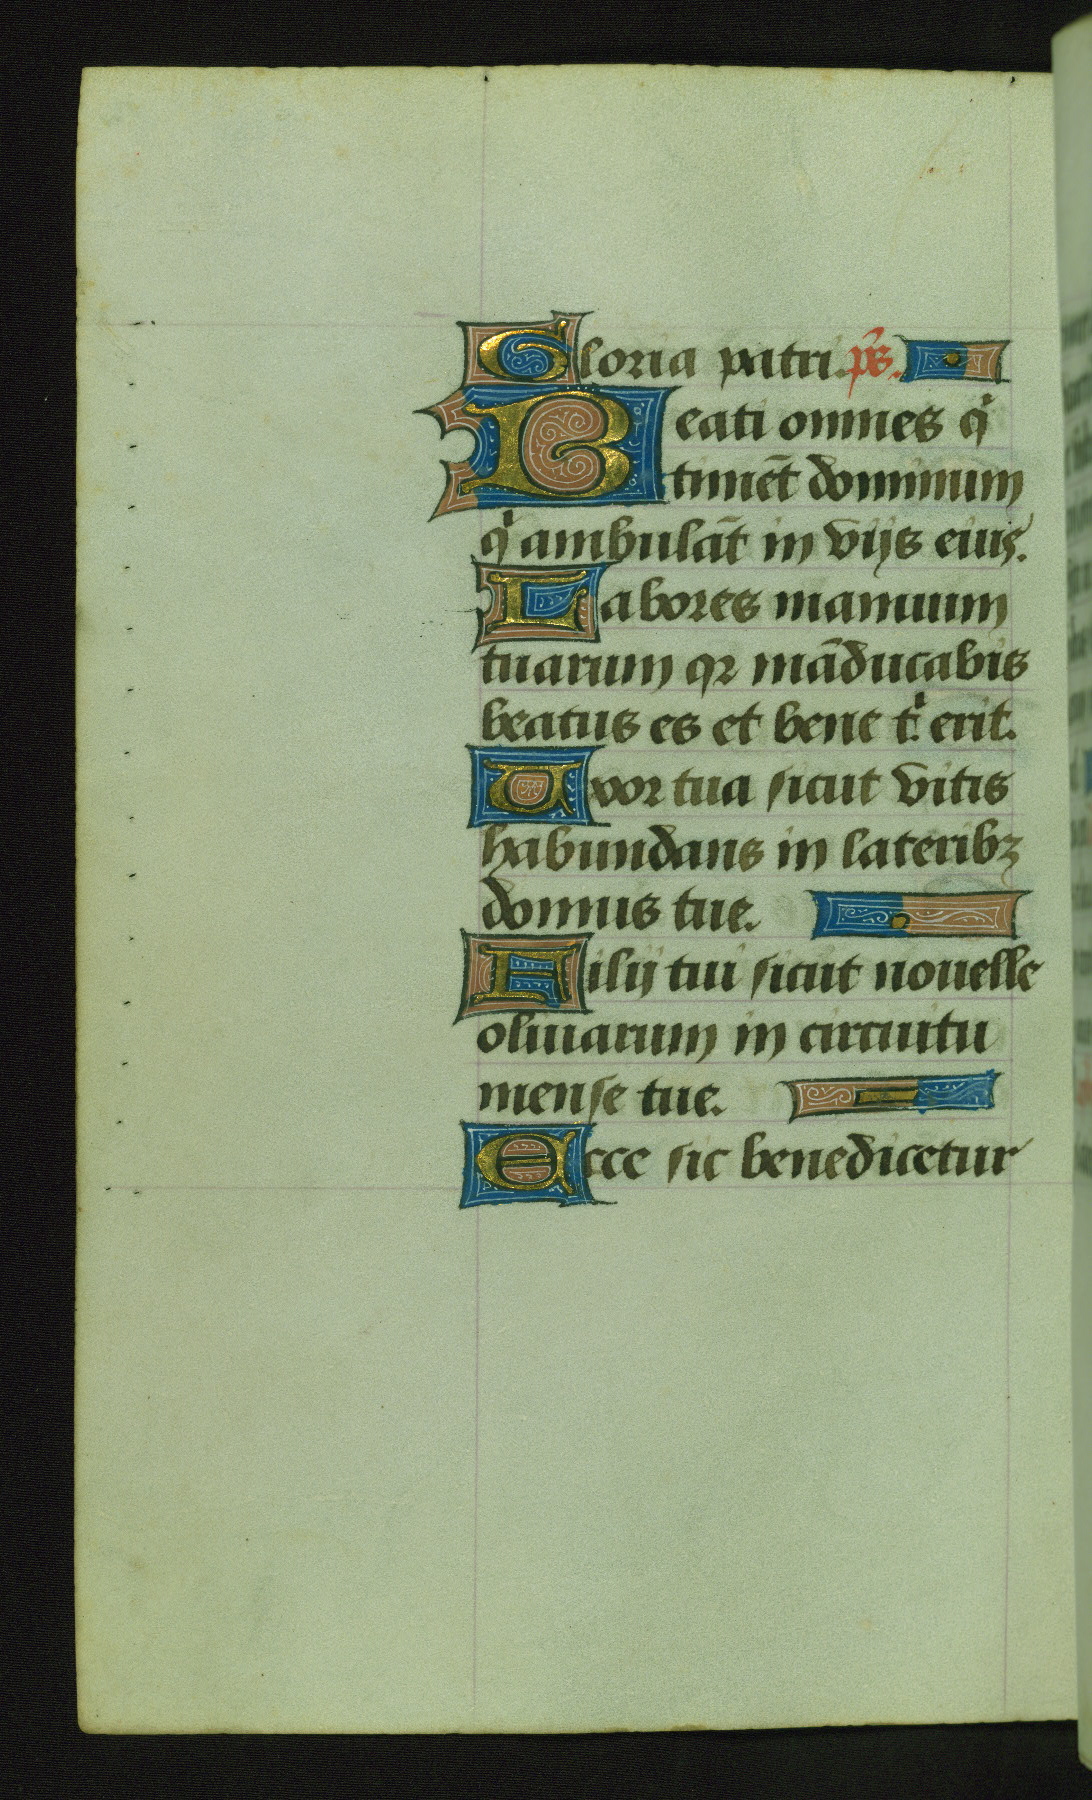 Gloria patri. p̄s.
Beati omnes qͥ
timēt dominum
qͥ ambulāt in viĳs eius.
Labores manuum
tuarum qꝛ māducabis
beatus es et bene tͥ erit.
Vxor tua sicut vitis
habundans in lateribꝫ
domus tue.
Filij tui sicut nouelle
oliuarum in circuitu
mense tue.
Ecce sic benedicetur